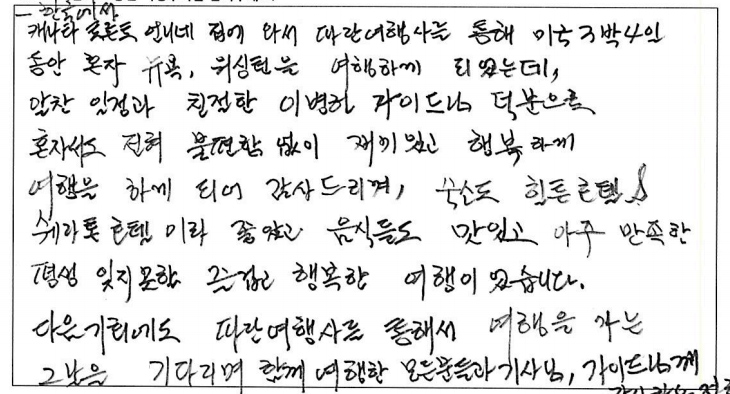 - 한국에서
캐나다 토론토 언니네 집에 와서 파란여행사를 통해 미국 3박4일
동안 혼자 뉴욕, 워싱턴을 여행하게 되었는데,
알찬 일정과 친절한 이병헌 가이드님 덕분으로
혼자서도 전혀 불편함 없이 재미있고 행복하게
여행을 하게 되어 감사드리며, 숙소도 힐튼호텔
쉐라톤호텔이라 좋았고 음식들도 맛있고 아주 만족한
평생 잊지못할 즐겁고 행복한 여행이었습니다.
다음기회에도 파란여행사를 통해서 여행을 가는
그날을 기다리며 함께 여행한 모든분들과 기사님, 가이드님께